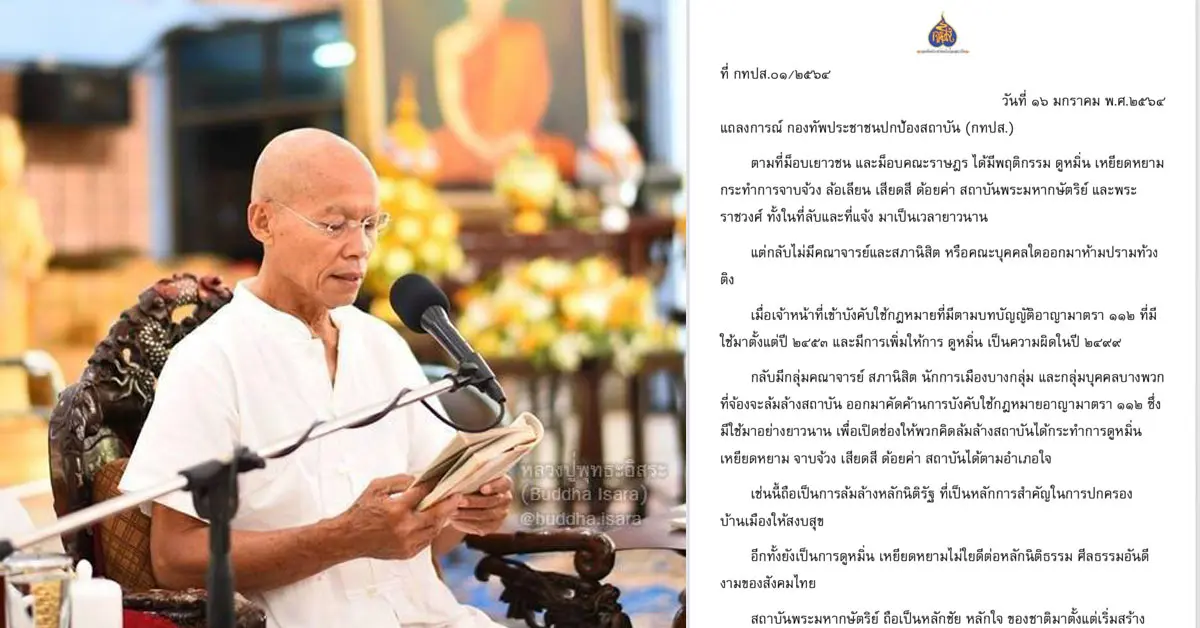 หลวงปู่พุทธะอิสระ
(Buddha Isara)
@buddha.isara
ที่ กทปส.๐๑/๒๕๖๔
วันที่ ๑๖ มกราคม พ.ศ.๒๕๖๔
แถลงการณ์ กองทัพประชาชนปกป้องสถาบัน (กทปส.)
ตามที่ม็อบเยาวชน และม็อบคณะราษฎร ได้มีพฤติกรรม ดูหมิ่น เหยียดหยาม
กระทำการจาบจ้วง ล้อเลียน เสียดสี ด้อยค่า สถาบันพระมหากษัตริย์ และพระ
ราชวงศ์ ทั้งในที่ลับและที่แจ้ง มาเป็นเวลายาวนาน
แต่กลับไม่มีคณาจารย์และสภานิสิต หรือคณะบุคคลใดออกมาห้ามปรามท้วง
ติง
เมื่อเจ้าหน้าที่เข้าบังคับใช้กฎหมายที่มีตามบทบัญญัติอาญามาตรา ๑๑๒ ที่มี
ใช้มาตั้งแต่ปี ๒๔๕๓ และมีการเพิ่มให้การ ดูหมิ่น เป็นความผิดในปี ๒๔๙๙
กลับมีกลุ่มคณาจารย์ สภานิสิต นักการเมืองบางกลุ่ม และกลุ่มบุคคลบางพวก
ที่จ้องจะล้มล้างสถาบัน ออกมาคัดค้านการบังคับใช้กฎหมายอาญามาตรา ๑๑๒ ซึ่ง
มีใช้มาอย่างยาวนาน เพื่อเปิดช่องให้พวกคิดล้มล้างสถาบันได้กระทำการดูหมิ่น
เหยียดหยาม จาบจ้วง เสียดสี ด้อยค่า สถาบันได้ตามอำเภอใจ
เช่นนี้ถือเป็นการล้มล้างหลักนิติรัฐ ที่เป็นหลักการสำคัญในการปกครอง
บ้านเมืองให้สงบสุข
อีกทั้งยังเป็นการดูหมิ่น เหยียดหยามไม่ใยดีต่อหลักนิติธรรม ศีลธรรมอันดี
งามของสังคมไทย
สถาบันพระมหากษัตริย์ ถือเป็นหลักชัย หลักใจ ของชาติมาตั้งแต่เริ่มสร้าง